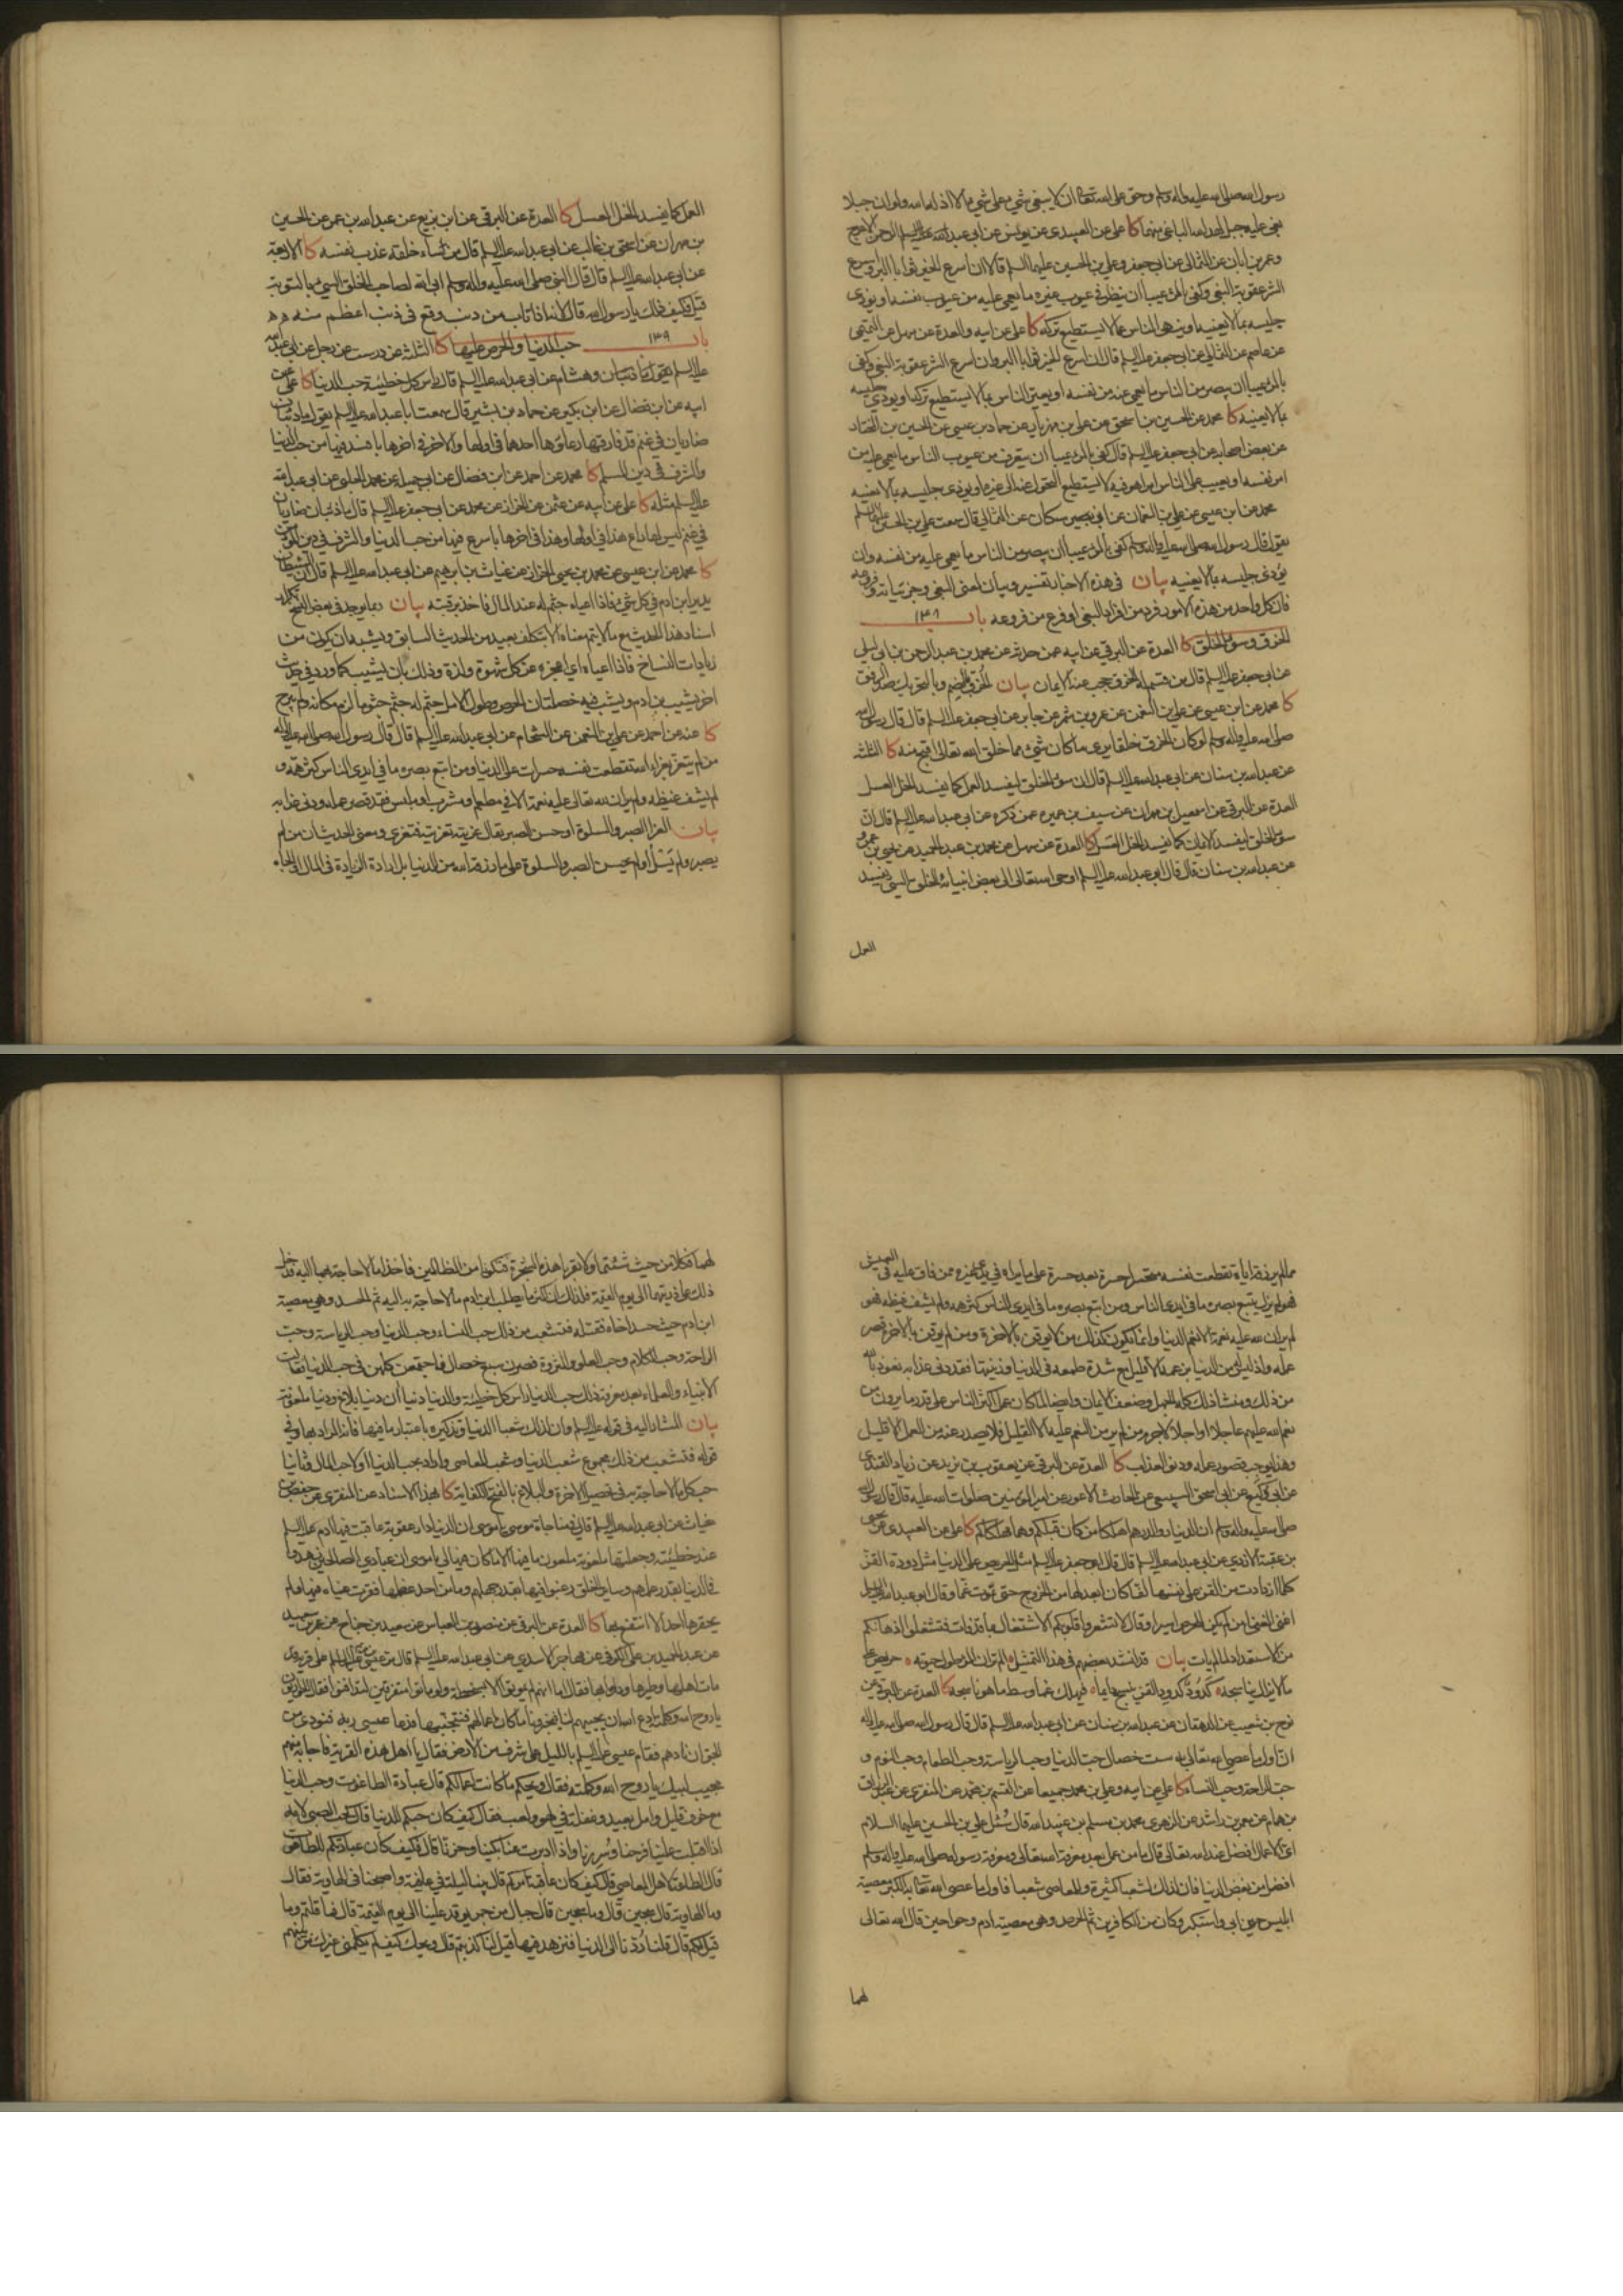 رسول الله صلى الله عليه واله وسلم وحق على الله تعالى ان لا يبغي شيء على شيء الا اذله الله ولو ان جبلا
بغى على جبل لهد الله الباغي منهما كا علي عن العبيدي عن يونس عن ابي عبد الله عليه السلم
وعمر بن ابان عن الثمالي عن ابي جعفر وعلي بن الحسين عليهما السلم قالا ان اسرع الخير ثوابا البر واسرع
الشر عقوبة البغي وكفى بالمرء عيبا ان ينظر في عيوب غيره ما يعمى عليه من عيوب نفسه او يوذي
جليسه بما لا يعنيه او ينهى الناس عما لا يستطيع تركه كا علي عن ابيه والعدة عن سهل عن التميمي
عن عاصم عن الثمالي عن ابي جعفر عليه السلم قال ان اسرع الخير ثوابا البر وان اسرع الشر عقوبة البغي وكفى
بالمرء عيبا ان يبصر من الناس ما يعمى عنه من نفسه او يعير الناس بما لا يستطيع تركه او يوذي جليسه
بما لا يعنيه كا محمد عن الحسين بن اسحق عن علي بن مهزيار عن حماد بن عيسى عن الحسين بن المختار
عن بعض اصحابه عن ابي جعفر عليه السلم قال كفى بالمرء عيبا ان يتعرف من عيوب الناس ما يعمى عليه من
امر نفسه او يعيب على الناس امرا هو فيه لا يستطيع التحول عنه الى غيره او يوذي جليسه بما لا يعنيه
محمد عن ابن عيسى عن علي بن النعمان عن ابن مسكان عن الثمالي قال سمعت علي بن الحسين عليهما السلم
يقول قال رسول الله صلى الله عليه واله وسلم كفى بالمرء عيبا ان يبصر من الناس ما يعمى عليه من نفسه وان
يوذي جليسه بما لا يعنيه بيان في هذه الاخبار تفسير وبيان لمعنى البغي وجزئياته وفروعه
فان كل واحد من هذه الامور فرد من افراد البغي او فرع من فروعه باب ١٣٨
الخرق وسوء الخلق كا العدة عن البرقي عن ابيه عمن حدثه عن محمد بن عبد الرحمن بن ابي ليلى
عن ابي جعفر عليه السلم قال من قسم له الخرق حجب عنه الايمان بيان الخرق بالضم وبالتحريك ضد الرفق
كا محمد عن ابن عيسى عن علي بن النعمن عن عمرو بن شمر عن جابر عن ابي جعفر عليه السلم قال قال رسول الله
صلى الله عليه واله وسلم لو كان الخرق خلقا يرى ما كان شيء مما خلق الله تعالى اقبح منه كا الثلثة
عن عبد الله بن سنان عن ابي عبد الله عليه السلم قال ان سوء الخلق ليفسد العمل كما يفسد الخل العسل
العدة عن البرقي عن اسمعيل بن مهران عن سيف بن عميرة عمن ذكره عن ابي عبد الله عليه السلم قال ان
سوء الخلق ليفسد الايمان كما يفسد الخل العسل كا العدة عن سهل عن محمد بن عبد الحميد عن يحيى بن عمرو
عن عبد الله بن سنان قال قال ابي عبد الله عليه السلم اوحى الله تعالى الى بعض انبيائه الخلق السيئ يفسد
العمل
العمل كما يفسد الخل العسل كا العدة عن البرقي عن ابن بزيع عن عبد الله بن عمر عن الحسين
بن مهران عن اسحق بن غالب عن ابي عبد الله عليه السلم قال من ساء خلقه عذب نفسه كا الاربعة
عن ابي عبد الله عليه السلم قال قال النبي صلى الله عليه واله وسلم ابى الله لصاحب الخلق السيئ بالتوبة
قيل وكيف ذلك يا رسول الله قال لانه اذا تاب من ذنب وقع في ذنب اعظم منه
باب ١٣٩ حب الدنيا والحرص عليها كا الثلثة عن درست عن رجل عن ابي عبد الله
وهشام عن ابي عبد الله عليه السلم قال راس كل خطيئة حب الدنيا كا علي عن
ابيه عن ابن فضال عن ابن بكير عن حماد بن بشير قال سمعت ابا عبد الله عليه السلم يقول ما ذئبان
ضاريان في غنم قد فارقها رعاؤها احدهما في اولها والاخر في اخرها بافسد فيها من حب الدنيا
والشرف في دين المسلم كا محمد عن احمد عن ابن فضال عن ابي جميلة عن محمد الحلبي عن ابي عبد الله
عليه السلم مثله كا علي عن ابيه عن عثمن عن الخزاز عن محمد عن ابي جعفر عليه السلم قال ما ذئبان ضاريان
في غنم ليس لها راع هذا في اولها وهذا في اخرها باسرع فيها من حب الدنيا والشرف في دين المؤمن
كا محمد عن ابن عيسى عن محمد بن يحيى الخزاز عن غياث بن ابرهيم عن ابي عبد الله عليه السلم قال ان الشيطان
يدير ابن ادم في كل شيء فاذا اعياه جثم له عند المال فاخذ برقبته بيان ربما يوجد في بعض النسخ
اسناد هذا الحديث مع ما لا يتم معناه الا بتكلف بعيد من الحديث السابق ويشبه ان يكون من
زيادات النساخ فاذا اعياه اي اعجزه عن كل شهوة ولذة وذلك بان يشيب كما ورد في حديث
اخر يشيب ابن ادم ويشب فيه خصلتان الحرص وطول الامل جثم له جثم جثوما لزم مكانه ولم يبرح
كا عنه عن احمد عن علي بن النعمن عن الشحام عن ابي عبد الله عليه السلم قال قال رسول الله صلى الله عليه واله
من لم يتعز بعزاء الله تقطعت نفسه حسرات على الدنيا ومن اتبع بصره ما في ايدي الناس كثر همه و
لم يشف غيظه ولم ير ان لله تعالى عليه نعمة الا في مطعم او مشرب او ملبس فقد قصر عمله ودنى عذابه
بيان العزاء الصبر والسلوة او حسن الصبر يقال عزيته تعزية فتعزى ومعنى الحديث ان من لم
يصبر ولم يسل او لم يحسن الصبر والسلوة على ما رزقه الله من الدنيا بل اراد الزيادة في المال او الجاه
مما لم يرزقه اياه تقطعت نفسه متحسرا حسرة بعد حسرة على ما يراه في يد غيره ممن فاق عليه في العيش
فهو لم يزل يتبع بصره ما في ايدي الناس ومن اتبع بصره ما في ايدي الناس كثر همه ولم يشف غيظه فهو
لم ير ان لله عليه نعمة الا نعم الدنيا وانما يكون كذلك من لا يوقن بالاخرة ومن لم يوقن بالاخرة قصر
عمله واذ ليس له من الدنيا بزعمه الا قليل مع شدة طمعه في الدنيا وزينتها فقد دنى عذابه نعوذ بالله
من ذلك ومنشا ذلك كله الجهل وضعف الايمان وايضا لما كان عمل اكثر الناس على قدر ما يرون من
نعم الله عليهم عاجلا او اجلا لا جرم من لم ير من النعم عليه الا القليل فلا يصدر عنه من العمل الا قليل
وهذا يوجب قصور عمله ودنو العذاب كا العدة عن البرقي عن يعقوب بن يزيد عن زياد القندي
عن ابي وكيع عن ابي اسحق السبيعي عن الحارث الاعور عن امير المؤمنين صلوات الله عليه قال قال رسول الله
صلى الله عليه واله وسلم ان الدينار والدرهم اهلكا من كان قبلكم وهما مهلكاكم كا علي عن العبيدي عن يحيى
بن عقبة الازدي عن ابي عبد الله عليه السلم قال قال ابو جعفر عليه السلم مثل الحريص على الدنيا مثل دودة القز
كلما ازدادت من القز على نفسها لفا كان ابعد لها من الخروج حتى تموت غما وقال ابو عبد الله عليه السلم
اغنى الغنى من لم يكن للحرص اسيرا وقال لا تشعروا قلوبكم الاشتغال بما قد فات فتشغلوا اذهانكم
عن الاستعداد لما لم يات بيان قد انشد بعضهم في هذا التمثيل الم تر ان المرء طول حيوته حريص على
ما لا يزال يناسجه كدود كدود القز ينسج دايما فيهلك غما وسط ما هو ناسجه كا العدة عن البرقي عن
نوح بن شعيب عن الدهقان عن عبد الله بن سنان عن ابي عبد الله عليه السلم قال قال رسول الله صلى الله عليه واله
ان اول ما عصي الله تعالى به ست خصال حب الدنيا وحب الرياسة وحب الطعام وحب النوم و
حب الراحة وحب النساء كا علي عن ابيه وعلي بن محمد جميعا عن القسم بن محمد عن المنقري عن عبد الرزاق
بن همام عن معمر بن راشد عن الزهري محمد بن مسلم بن عبيد الله قال سئل علي بن الحسين عليهما السلام
اي الاعمال افضل عند الله تعالى قال ما من عمل بعد معرفة الله تعالى ومعرفة رسوله صلى الله عليه واله وسلم
افضل من بغض الدنيا فان لذلك لشعبا كثيرة وللمعاصي شعبا فاول ما عصي الله تعالى به الكبر معصية
ابليس حين ابى واستكبر وكان من الكافرين ثم الحرص وهي معصية ادم وحوا حين قال الله تعالى
لهما
لهما فكلا من حيث شئتما ولا تقربا هذه الشجرة فتكونا من الظالمين فاخذا ما لا حاجة بهما اليه فدخل
ذلك على ذريتهما الى يوم القيمة فلذلك ان اكثر ما يطلب ابن ادم ما لا حاجة به اليه ثم الحسد وهي معصية
ابن ادم حيث حسد اخاه فقتله فتشعب من ذلك حب النساء وحب الدنيا وحب الرياسة وحب
الراحة وحب الكلام وحب العلو والثروة فصرن سبع خصال فاجتمعن كلهن في حب الدنيا فقالت
الانبياء والعلماء بعد معرفة ذلك حب الدنيا راس كل خطيئة والدنيا دنيا ان دنيا بلاغ ودنيا ملعونة
بيان المشار اليه في قوله عليه السلم وان لذلك شعبا الدنيا وتذكيره باعتبار ما فيها فانه المراد بها وفي
قوله فتشعب من ذلك مجموع شعب الدنيا وشعب المعاصي والمراد بحب الدنيا اولا حب المال وثانيا
حب كل ما لا حاجة به في تحصيل الاخرة والبلاغ بالفتح الكفاية كا بهذا الاسناد عن المنقري عن حفص بن
غياث عن ابي عبد الله عليه السلم قال في مناجاة موسى يا موسى ان الدنيا دار عقوبة عاقبت فيها ادم عليه السلم
عند خطيئته وجعلتها ملعونة ملعون ما فيها الا ما كان فيها لي يا موسى ان عبادي الصالحين زهدوا
في الدنيا بقدر علمهم وساير الخلق رغبوا فيها بقدر جهلهم وما من احد عظمها فقرت عيناه فيها ولم
يحقرها احد الا انتفع بها كا العدة عن البرقي عن منصور بن العباس عن سعيد بن جناح عن عثمن بن سعيد
عن عبد الحميد بن علي الكوفي عن مهاجر الاسدي عن ابي عبد الله عليه السلم قال مر عيسى بن مريم عليهما السلم على قرية قد
مات اهلها وطيرها ودوابها فقال اما انهم لم يموتوا الا بسخطة ولو ماتوا متفرقين لتدافنوا فقال الحواريون
يا روح الله وكلمته ادع الله ان يحييهم لنا فيخبرونا ما كانت اعمالهم فنتجنبها فدعا عيسى ربه فنودي من
الجو ان نادهم فقام عيسى عليه السلم بالليل على شرف من الارض فقال يا اهل هذه القرية فاجابه منهم
مجيب لبيك يا روح الله وكلمته فقال ويحكم ما كانت اعمالكم قال عبادة الطاغوت وحب الدنيا
مع خوف قليل وامل بعيد وغفلة في لهو ولعب فقال كيف كان حبكم للدنيا قال كحب الصبي لامه
اذا اقبلت علينا فرحنا وسررنا واذا ادبرت عنا بكينا وحزنا قال فكيف كان عبادتكم للطاغوت
قال الطاعة لاهل المعاصي قال كيف كان عاقبة امركم قال بتنا ليلة في عافية واصبحنا في الهاوية فقال
وما الهاوية قال سجين قال وما سجين قال جبال من جمر يوقد علينا الى يوم القيمة قال فما قلتم وما
قيل لكم قال قلنا ردنا الى الدنيا فنزهد فيها قيل لنا كذبتم قال ويحك كيف لم يكلمني غيرك من بينهم